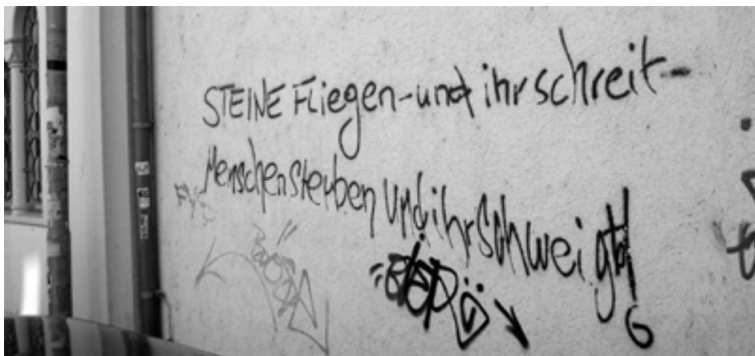 STEINE Fliegen - und ihr schreit -
Menschen sterben und ihr schweigt!